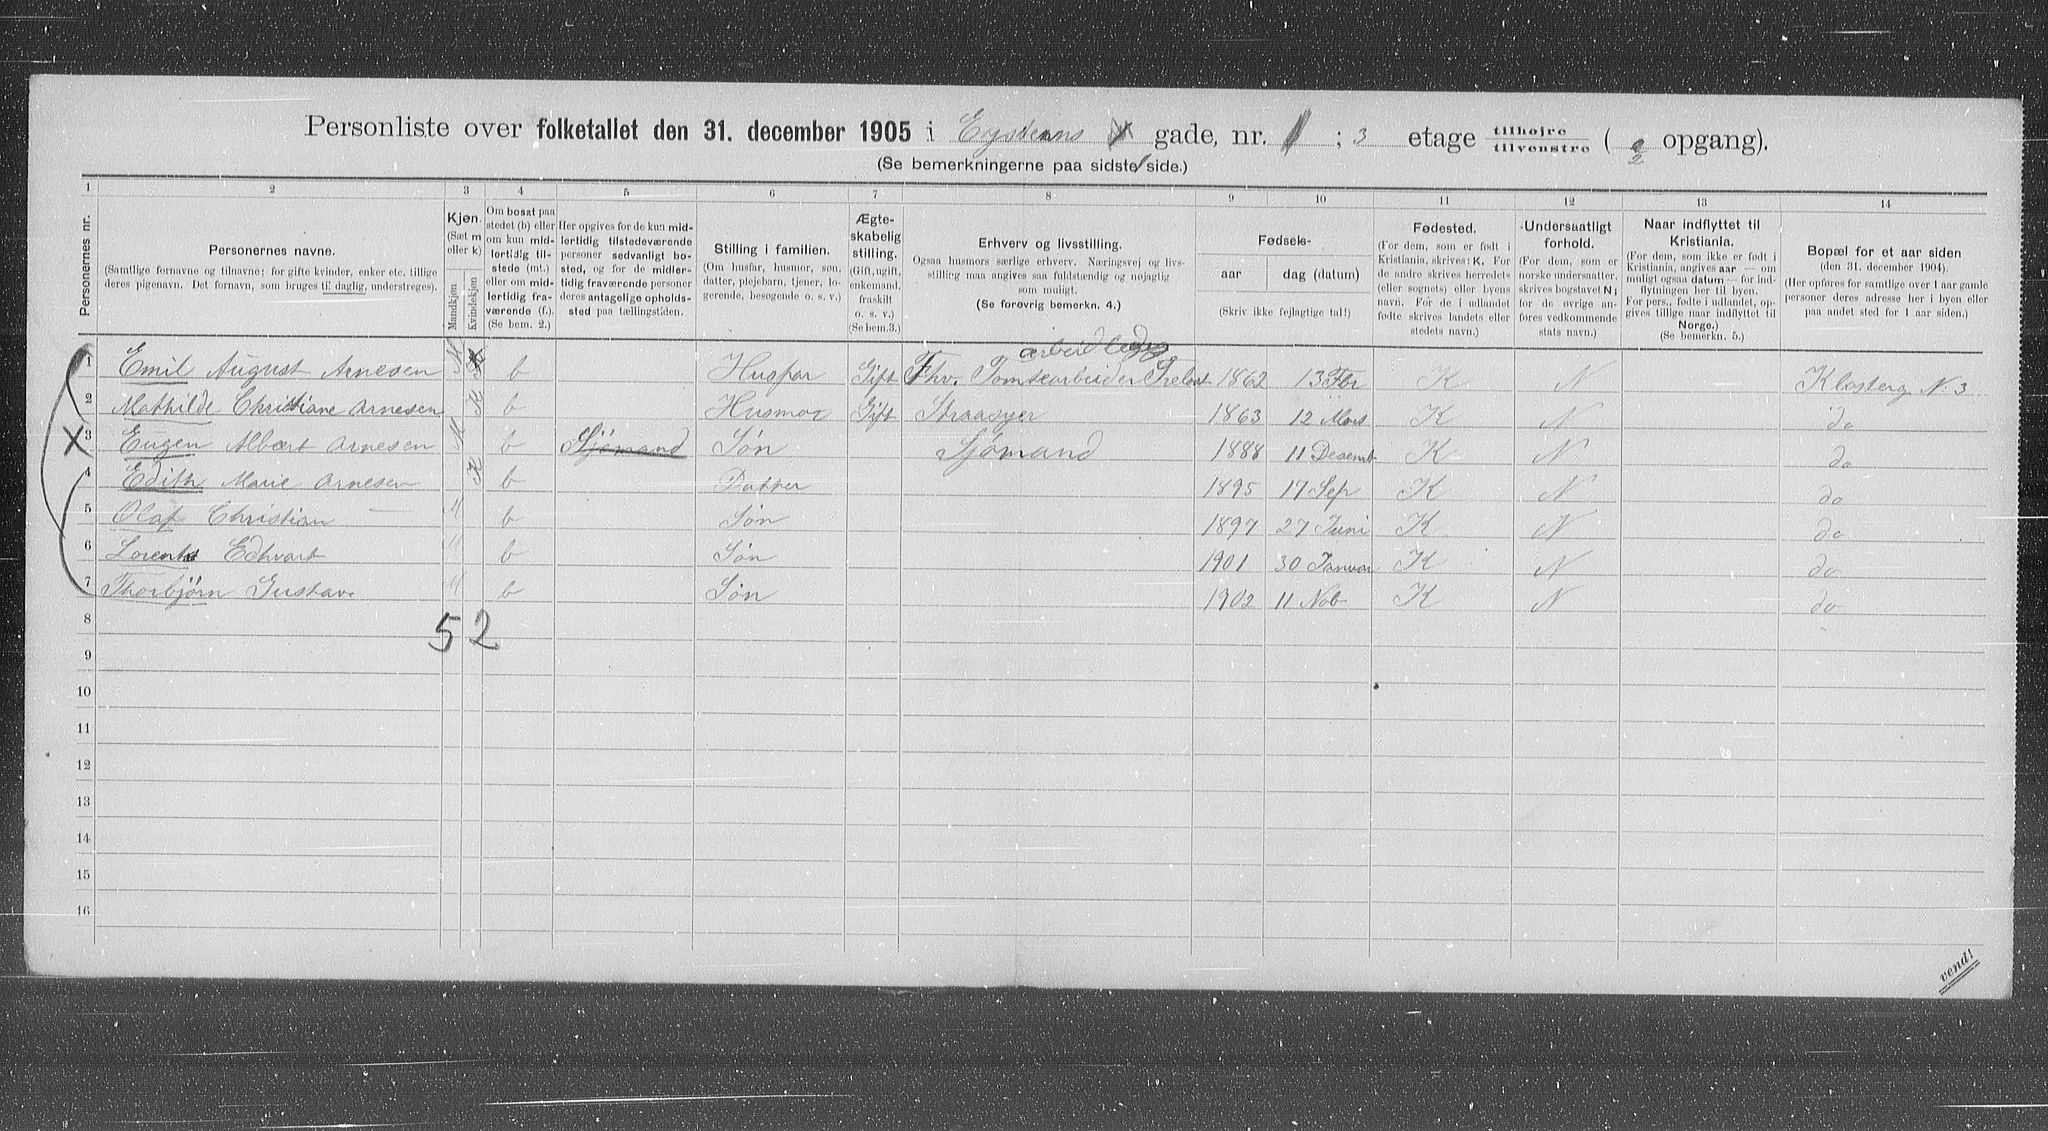 Personliste over folketallet den 31. december 1905 i Eysteins gade, nr. 1 ; 3 etage tilhøjre tilvenstre ( 2 opgang).
(Se bemerkningerne paa sidste side.)
1 2 3 4 5 6 7 8 9 10 11 12 13 14
Personernes nr.
Personernes navne.
(Samtlige fornavne og tilnavne; for gifte kvinder, enker etc. tillige
deres pigenavn. Det fornavn, som bruges til daglig, understreges).
Kjøn.
(Sæt m
eller k)
Mandkjøn
Kvindekjøn
Om bosat paa
stedet (b) eller
om kun mid-
lertidig til-
stede (mt.)
eller om mid-
lertidig fra-
værende (f.)
(Se bem. 2.)
Her opgives for de kun mid-
lertidig tilstedeværende
personer sedvanligt bo-
sted, og for de midler-
tidig fraværende personer
deres antagelige opholds-
sted paa tællingstiden.
Stilling i familien.
(Om husfar, husmor, søn,
datter, plejebarn, tjener, lo-
gerende, besøgende o. s. v.)
Ægte-
skabelig
stilling.
(Gift, ugift,
enkemand,
fraskilt
o. s. v.)
(Se bem.3.)
Erhverv og livsstilling.
Ogsaa husmors særlige erhverv. Næringsvej og livs-
stilling maa angives saa fuldstændig og nøjagtig
som muligt.
(Se forøvrig bemerkn. 4.)
Fødsels-
aar
dag (datum)
(Skriv ikke fejlagtige tal!)
Fødested.
(For dem, som er født i
Kristiania, skrives: K. For
de andre skrives herredets
(eller sognets) eller byens
navn. For de i udlandet
fødte skrives landets eller
stedets navn.)
Undersaatligt
forhold.
(For dem, som er
norske undersaatter,
skrives bogstavet N;
for de øvrige an-
føres vedkommende
stats navn.)
Naar indflyttet til
Kristiania.
(For dem, som ikke er født i
Kristiania, angives aar — om
muligt ogsaa datum — for ind-
flytningen her til byen.
For pers., fødte i udlandet, op-
gives tillige naar indflyttet til
Norge.)
(Se bemerkn. 5.)
Bopæl for et aar siden
(den 31. december 1904).
(Her opføres for samtlige over 1 aar gamle
personer deres adresse her i byen eller
paa andet sted for 1 aar siden.)
arbeid
1 Emil August Arnesen M b Husfar Gift Fhv. Tomtearbeider 1862 13 K N Klosterg N. 3
2 Mathilde Christiane Arnesen K b Husmor Gift Straasyer 1863 12 Mars K N do
X 3 Eugen Albert Arnesen M b Sjømand Søn Sjømand 1888 11 K N do
4 Edith Marie Arnesen K b Datter 1895 17 Sep K N do
5 Olaf Christian — M b Søn 1897 27 Juni K N do
6 Lorents Edhvart b Søn 1901 30 Januar K N do
7 Thorbjørn Gustave M b Søn 1902 11 Nob K N do
8
5 2
9
10
11
12
13
14
15
16
vend!